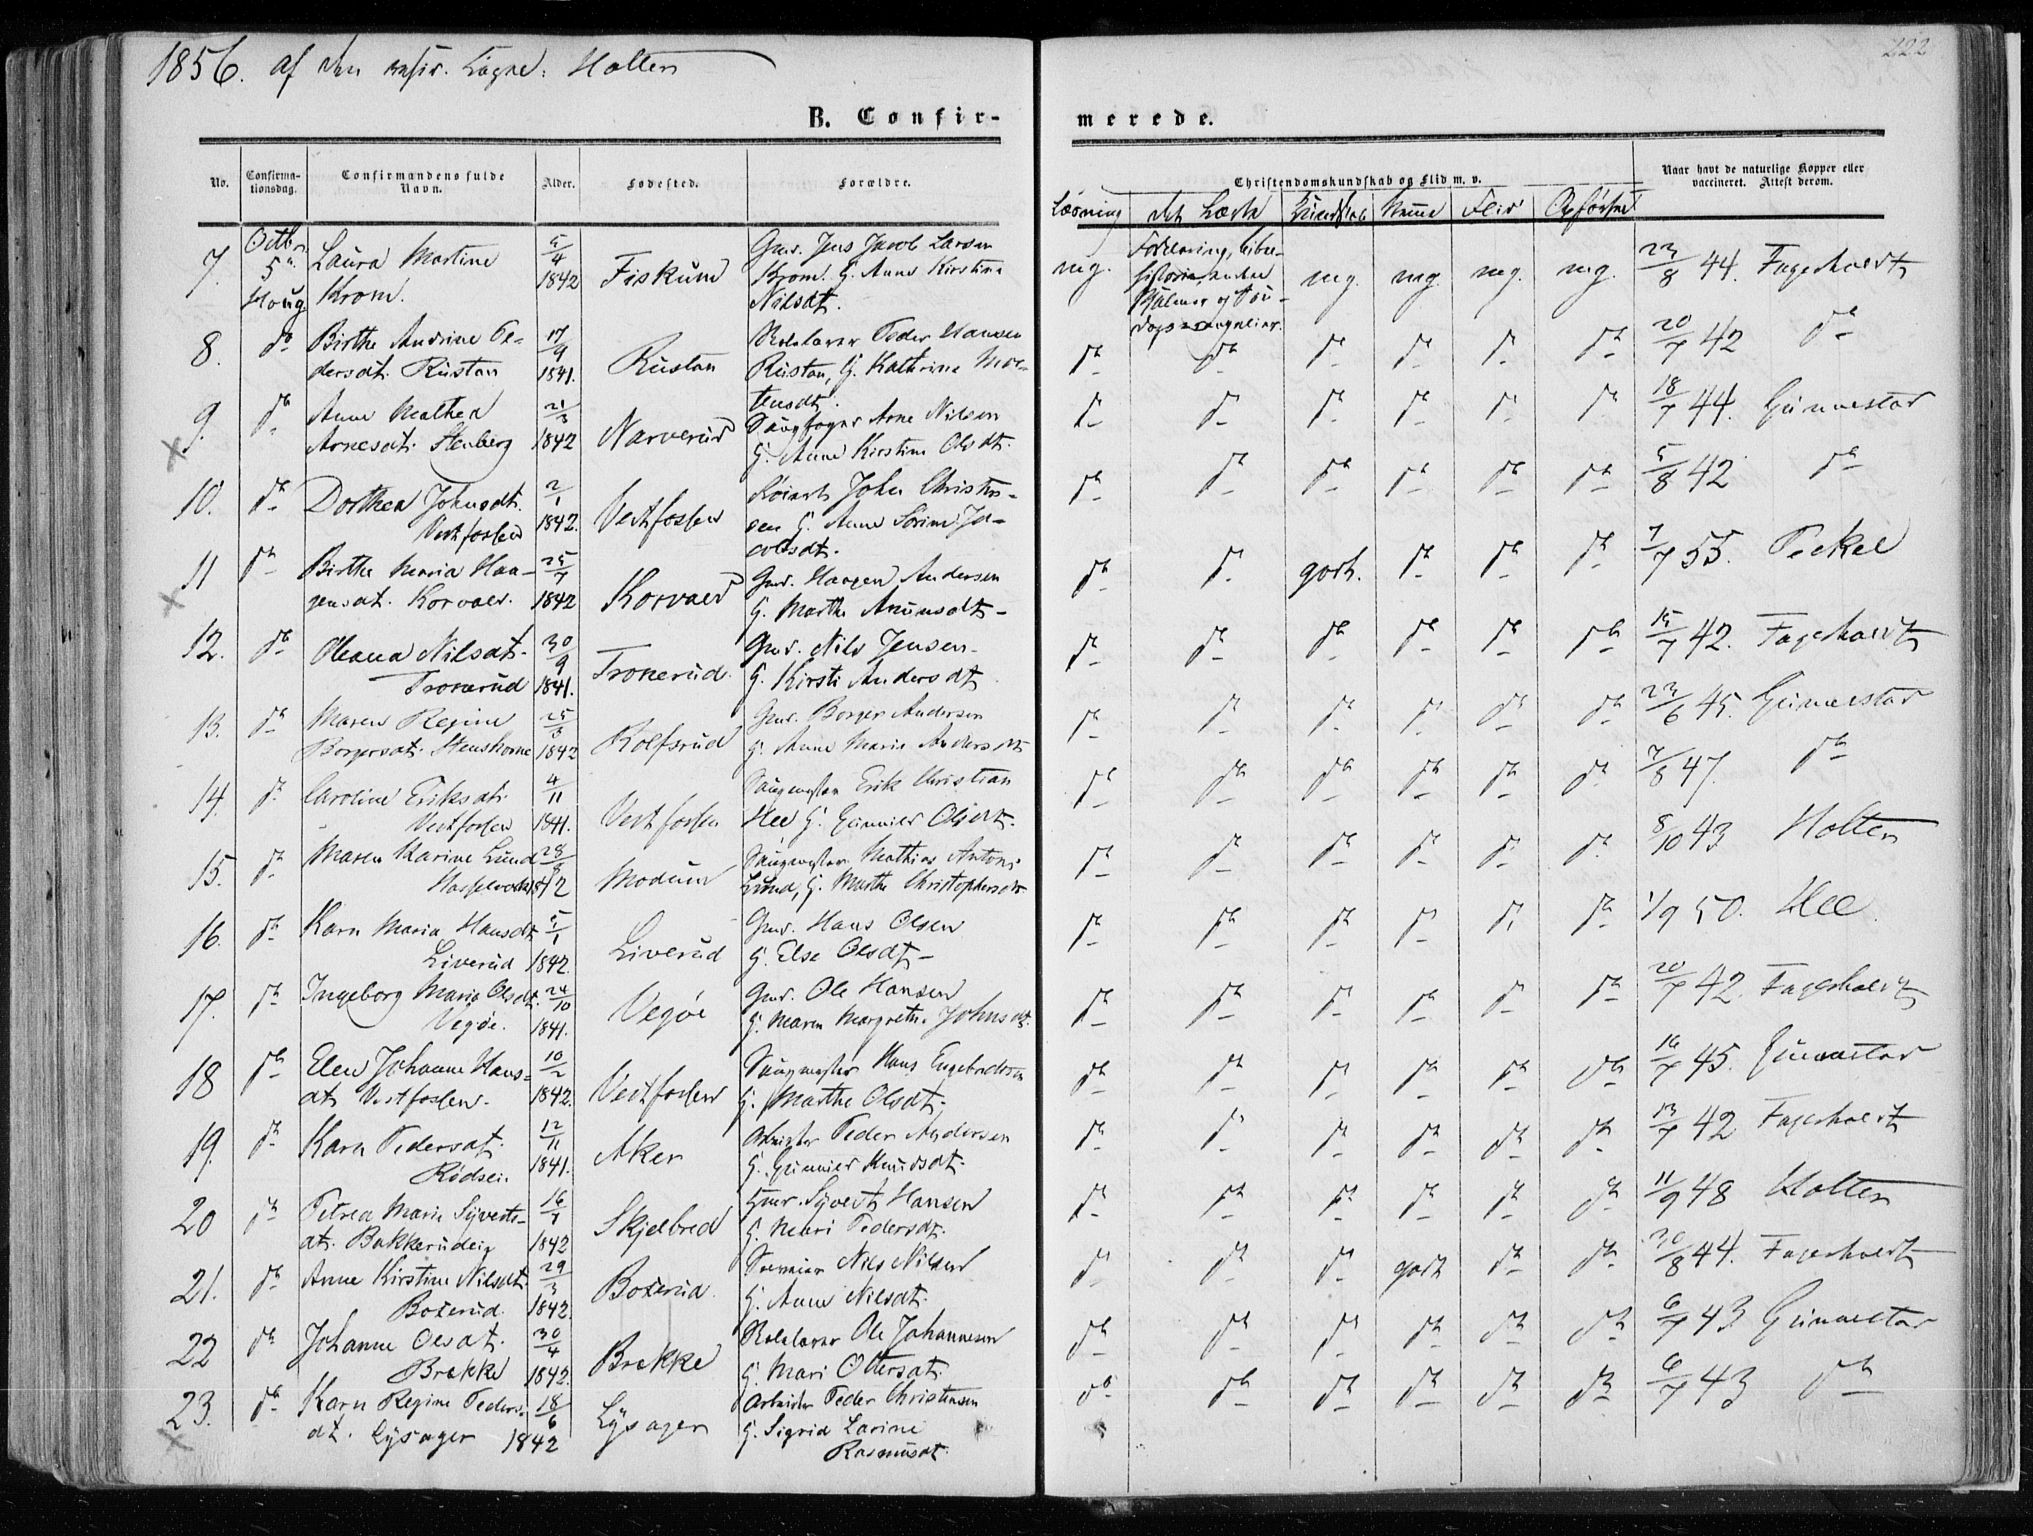 1856. af den resid. Sogne: Holten
222
B. Confir-
merede.
No.
Confirma-
tionsdag.
Confirmandens fulde
Navn.
Alder.
Fødested.
Forældre.
Christendomskundskab og Flid m. v.
Naar havt de naturlige Kopper eller
vaccineret. Attest derom.
Læsning det Lærte Kundskab Nemme Flid Opførsel
7. Octbr. 5te Houg Laura Martine Krom. 5/4 1842 Fiskum Gmd. Jens Jacob Larsen Krom. G. Anne Kirstine Nilsdt.
mg. Forklaring, Bibel- historie, andre Psalmer og Søn- dagsevangelier. mg. mg mg. mg. 23/8 44. Fagerholdt
8. do Birthe Andrine Pe- dersdt. Rustan 17/9 1841. Rustan Skolelærer Peder Hansen Rustan, G. Kathrine Mor- tensdt.
do do do do do do 20/7 42 do
9. do Anne Mathea Arnesdt. Stenberg 21/3 1842 Narverud Saugfoged Arne Nilsen G. Anne Kirstine Olsdt.
do do do do do do 18/7 44. Gunnestad
10. do Dorthea Johnsdt. Vestfossen 2/1 1842. Vestfossen John Christen- sen G. Anne Sorine Ja- cobsdt.
do do do do do do 5/8 42 do
11 do Birthe Maria Haa- gensdt. Korvald. 25/7 1842 Korvald Gmd. Haagen Andersen G. Marthe Amunsdt.
do do godt. do do do 7/7 55. Peckel
12. do Oleana Nilsdt. Tronerud 30/9 1841. Tronerud. Gmd. Nils Jensen G. Kirsti Andersdt
do do do do do do 15/7 42. Fagerholdt
13. do Maren Regine Borgersdt. Stenshorne 25/3 1842 Rolfsrud Gmd. Borger Andersen G. Anne Maria Andersdt
do do do do do do 23/6 45. Gunnestad
14. do Caroline Eriksdt. Vestfossen 4/11 1841. Vestfossen Saugmester Erik Christian Hee G. Gunnild Olsdt.
do do do do do do 7/8 47. do
15. do Maren Karine Lund 28/3 1842 Modum Saugmester Mathias Anton: Lund, G. Marthe Christophersdt
do do do do do do 8/10 43 Holten
16. do Karn Maria Hansdt. Liverud 5/1 1842. Liverud Gmd. Hans Olsen G. Else Olsdt.
do do do do do do 1/9 50. Hee
17. do Ingeborg Maria Olsdt. Vegøe. 24/10 1841. Vegøe Gmd. Ole Hansen G. Maren Margrethe Johnsdt.
do do do do do do 20/7 42. Fagerholdt
18 do Elen Johanne Hans- dt. Vestfossen. 10/2 1842. Vestfossen Saugmester Hans Engebretsen G. Marthe Olsdt.
do do do do do do 16/7 45. Gunnestad
19. do Karn Pedersdt. Rødsei. 12/11 1841. Aker Arbeider Peder Andersen G. Gunnild Knudsdt.
do do do do do do 13/7 42 Fagerholdt
20 do Petrea Marie Syverts- dt. Bakkerudeig 16/7 1842 Skjelbred Hmd. Syvert Hansen G. Mari Pedersdt.
do do do do do do 11/9 48 Holten
21. do Anne Kirstine Nilsdt. Boterud. 29/3 1842. Boterud. Nils Nilsen G. Anne Nilsdt.
do do do godt do do 30/8 44. Fagerholdt
22 do Johanne Olsdt. Brekke 30/4 1842. Brekke Skolelærer Ole Johannesen G. Mari Ottersdt.
do do do do do do 6/7 43 Gunnestad
23. do Karn Regine Peders- dt. Lysager 18/6 1842 Lysager Arbeider Peder Christensen G. Sigrid Larine Rasmusdt.
do do do do do do 6/7 43 do